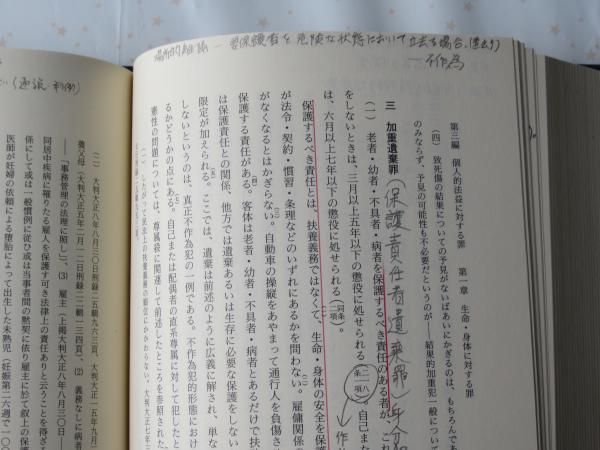 場所的離隔 ― 要保護者を危険な状態において立去る場合(置去り)
―不作為
(通説 判例)
第三編 個人的法益に対する罪 第一章 生命・身体に対する罪
(四) 致死傷の結果についての予見がないばあいにかぎるのは、もちろんであ
のみならず、予見の可能性も不必要だというのが――結果的加重犯一般について
三 加重遺棄罪 (保護責任者遺棄罪) 身分
(一) 老者・幼者・不具者・病者を保護するべき責任のある者が、これ
をしないときは、三月以上五年以下の懲役に処せられる(二一八条一項)。自己また
は、六月以上七年以下の懲役に処せられる(同条二項)。
保護するべき責任とは、扶養義務ではなくて、生命・身体の安全を保護
が法令・契約・慣習・条理などのいずれにあるかを問わない。雇傭関係
がなくなるとはかぎらない。自動車の操縦をあやまって通行人を負傷さ
保護する責任がある。客体は老者・幼者・不具者・病者とあるだけで扶
は保護責任との関係、他方では遺棄あるいは生存に必要な保護をしない
限定が加えられる。ここでは、遺棄は前述のように広義に解され、単な
しないというのは、真正不作為犯の一例である。不作為犯的形態におけ
るかどうかの点にある。自己または配偶者の直系尊属に対して犯したと
憲性の問題については、尊属殺に関連して前述したところを参照された
(一) したがって民法上の扶養義務の順位にかかわらない。大判大正七年三
(二) 大判大正八年八月三〇日刑録二五輯九六三頁、大判大正一五年九月二
養父母(大判大正五年二月一二日刑録二二輯一三四頁)、(2) 義務なしに病者
――「事務管理の法理に照し」、(3) 雇主(上掲大判大正八年八月三〇日――
同居中疾病に罹りたる雇人を保護す可き法律上の責任ありと云うことを得ざ
係にして或は一般慣例に従ひ或は当事者間の黙契に依り雇主に於て叙上の保護
医師が妊婦の依頼による堕胎によって出生した未熟児(妊娠第二六週で一〇〇